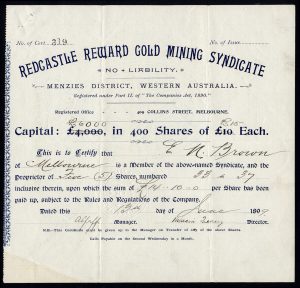 No. of Cert. 219 No. of Issue
REDCASTLE REWARD GOLD MINING SYNDICATE
NO LIABILITY.
MENZIES DISTRICT, WESTERN AUSTRALIA.
Registered under Part II. of "The Companies Act, 1890."
Registered Office 409 COLLINS STREET, MELBOURNE.
£6000 £15
Capital: £4,000, in 400 Shares of £10 Each.
This is to Certify that E. N. Brown
of Melbourne is a Member of the above-named Syndicate, and the
Proprietor of Five (5) Shares, numbered 33 to 37
inclusive therein, upon which the sum of £14-10-0 per Share has been
paid up, subject to the Rules and Regulations of the Company.
Dated this day of June 189
Manager.
N.B.—This Certificate must be given up to the Manager on Transfer of any of the above Shares.
Calls Payable on the Second Wednesday in a Month.